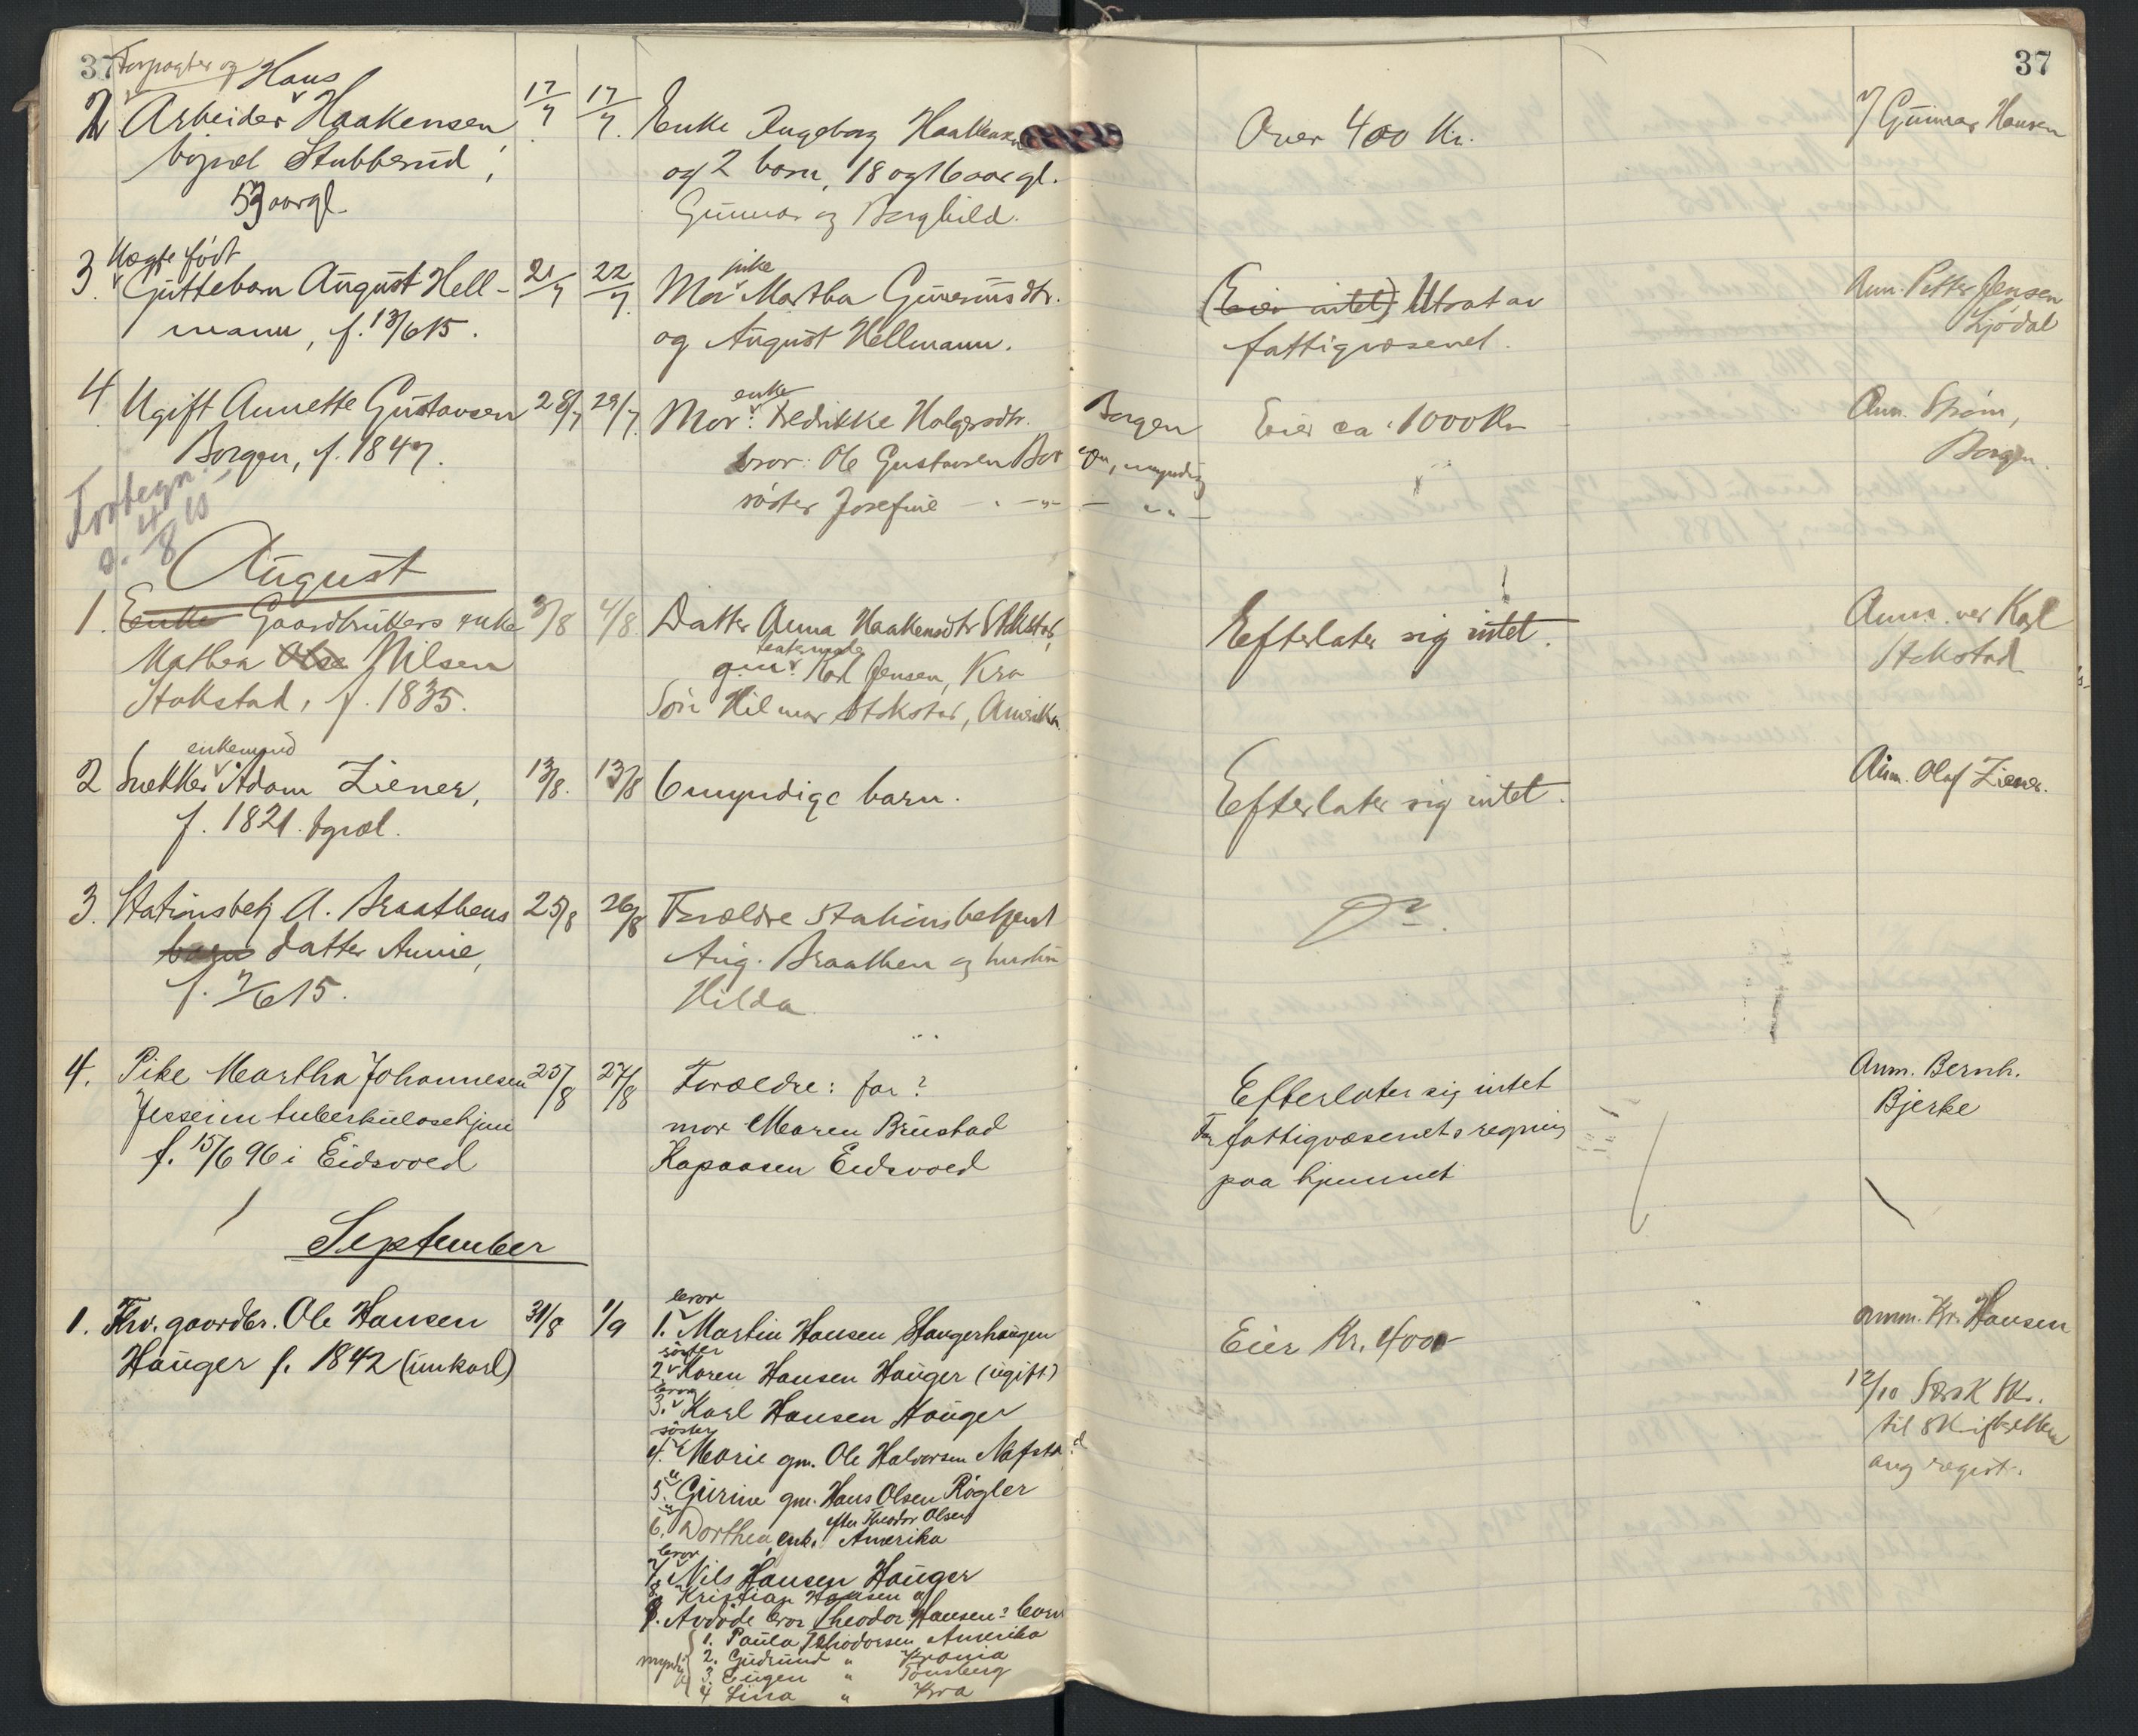 37
Forpagter og Hans
2 Arbeider Haakensen 17/7 17/7. Enke Ingeborg Haakensen Over 400 Kr. v/ Gunnar Hansen
bosat Stubberud, og 2 barn, 18 og 16 aar gl.
53 aargl. Gunnar og Borghild.
37
Uegte født
3. Guttebarn August Hell- 21/7 22/7. Mor pike Martha Guneriusdtr. (Eier intet) Utsat av Anm. Petter Jensen
mann, f. 13/6 15. og August Hellmann. fattigvæsenet. Ljødal
4 Ugift Annette Gustavsen 28/7 29/7. Mor: enke Fredrikke Holgersdtr. Borgen Eier ca. 1000 Kr Anm. Strøm,
Borgen, f. 1847. bror: Ole Gustavsen Borgen, myndig Borgen.
søster Josefine — " — " —
Fortegn.
d. 4/8 15
August
1. Enke Gaardbrukers enke 3/8 4/8 Datter Anna Haakensdtr Stokstad, Efterlater sig intet. Anm. ver Karl
Mathea Olse Nilsen g.m. Karl Jensen, Kra Stokstad
Stokstad, f. 1835. Søn Hilmar Stokstad, Amerika
enkemand
2 Snekker Adam Ziener, 13/8. 13/8 6 myndige barn. Efterlater sig intet. Anm. Olaf Ziener.
f. 1821.
3. Stationsbetj A. Braathens 25/8 26/8 Forældre Stationsbetjent Do.
barn datter Annie, Aug. Braathen og hustru
f. 7/6 15. Hilda
4. Pike Martha Johannesen 25/8 27/8 Forældre: far? Efterlater sig intet Anm. Bernh.
Jesseim tuberkulosehjem mor Maren Brustad For fattigvæsenets regning Bjerke
f. 15/6 96 i Eidsvold Kapaasen Eidsvold paa hjemmet
September
1. Fhv. gaardbr. Ole Hansen 31/8 1/9 1. bror Martin Hansen Haugerhaugen Eier Kr. 4000 anm. Kr. Hansen
Hauger f. 1842 (unkarl) 2 søster Karen Hansen Hauger (ugift)
3. bror Karl Hansen Hauger 12/10
4. søster Marie gm. Ole Halvorsen Nafstad til
5. " Gurine gm. Hans Olsen Røgler ang regist.
6. " Dorthea, enke efter Theodor Olsen Amerika
7. bror Nils Hansen Hauger
8. " Kristian Hansen
9. Avdøde bror Theodor Hansens barn
myndig
1. Paula Theodorsen Amerika
2. Gudrund " Krania
3. Eugen " Tønsberg
4 Lina " Kra